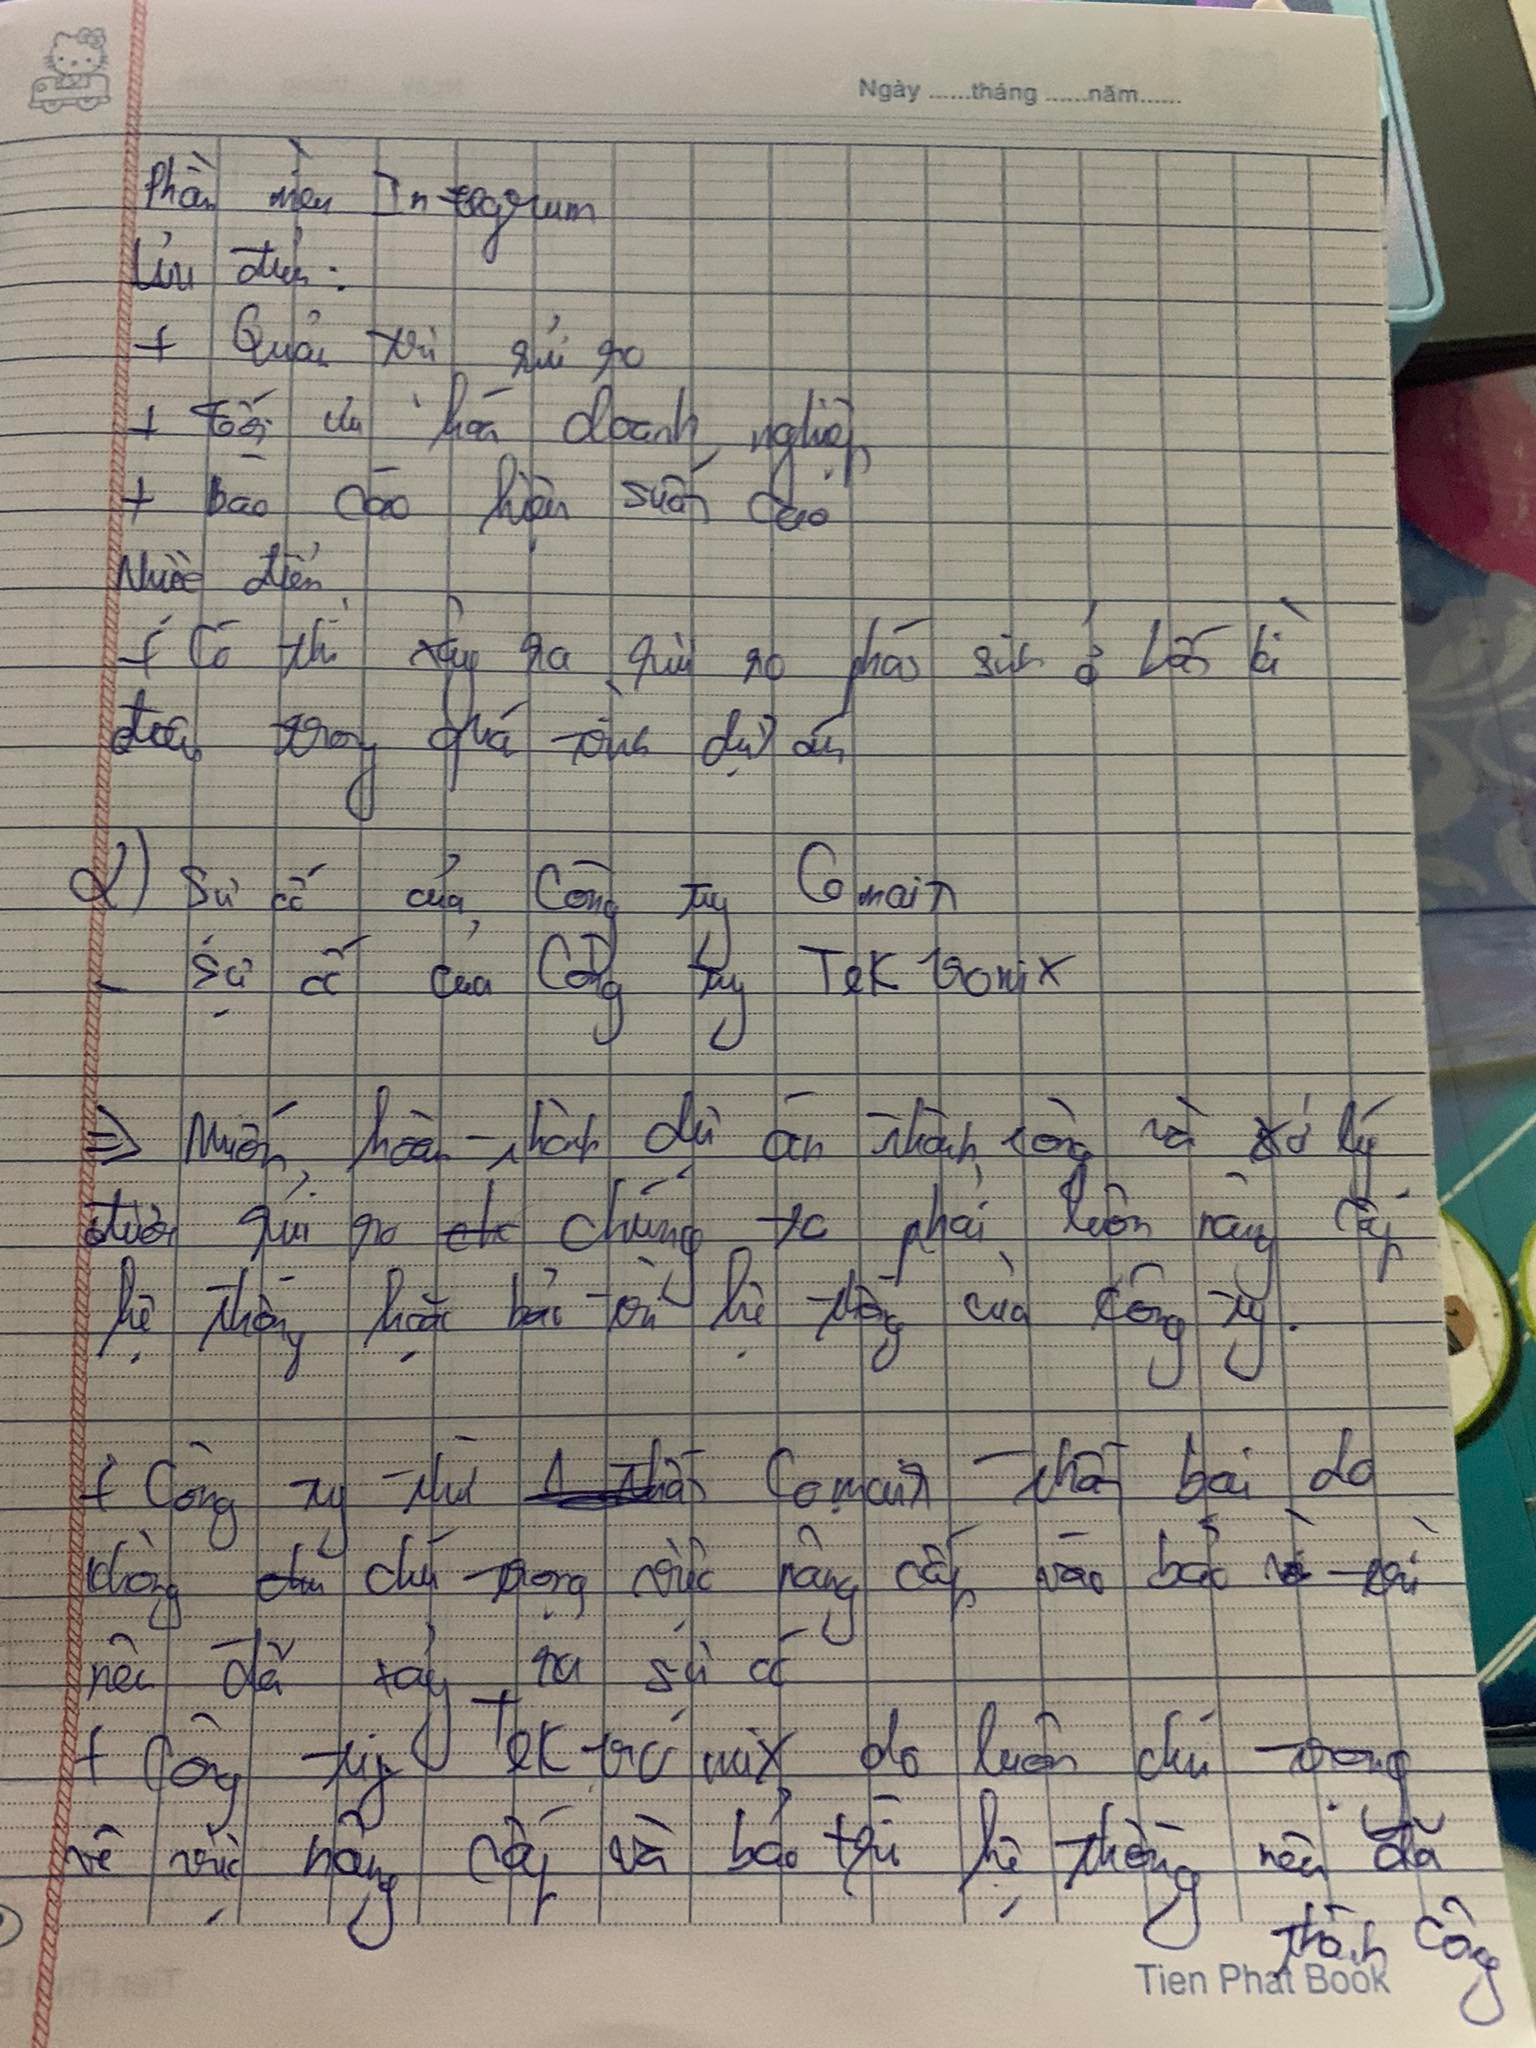 Ngày ......tháng ......năm......
Phần mềm Integrum
Ưu điểm:
+ Quản trị rủi ro
+ tối ưu hoá doanh nghiệp
+ báo cáo hiệu suất cao
Nhược điểm
+ Có thể xảy ra rủi ro phát sinh ở bất kì
đâu trong quá trình dự án
2) Sự cố của Công ty Comair
- Sự cố của Công ty Tektronix
=> Muốn hoàn thành dự án thành công và xử lý
được rủi ro chúng ta phải luôn nâng cấp
hệ thống hoặc bảo trì hệ thống của công ty.
+ Công ty như Comair thất bại do
không chú trọng việc nâng cấp vào bảo trì
nên đã xảy ra sự cố
+ Công ty Tektronix do luôn chú trọng
về việc nâng cấp và bảo trì hệ thống nên đã
thành công
Tien Phat Book